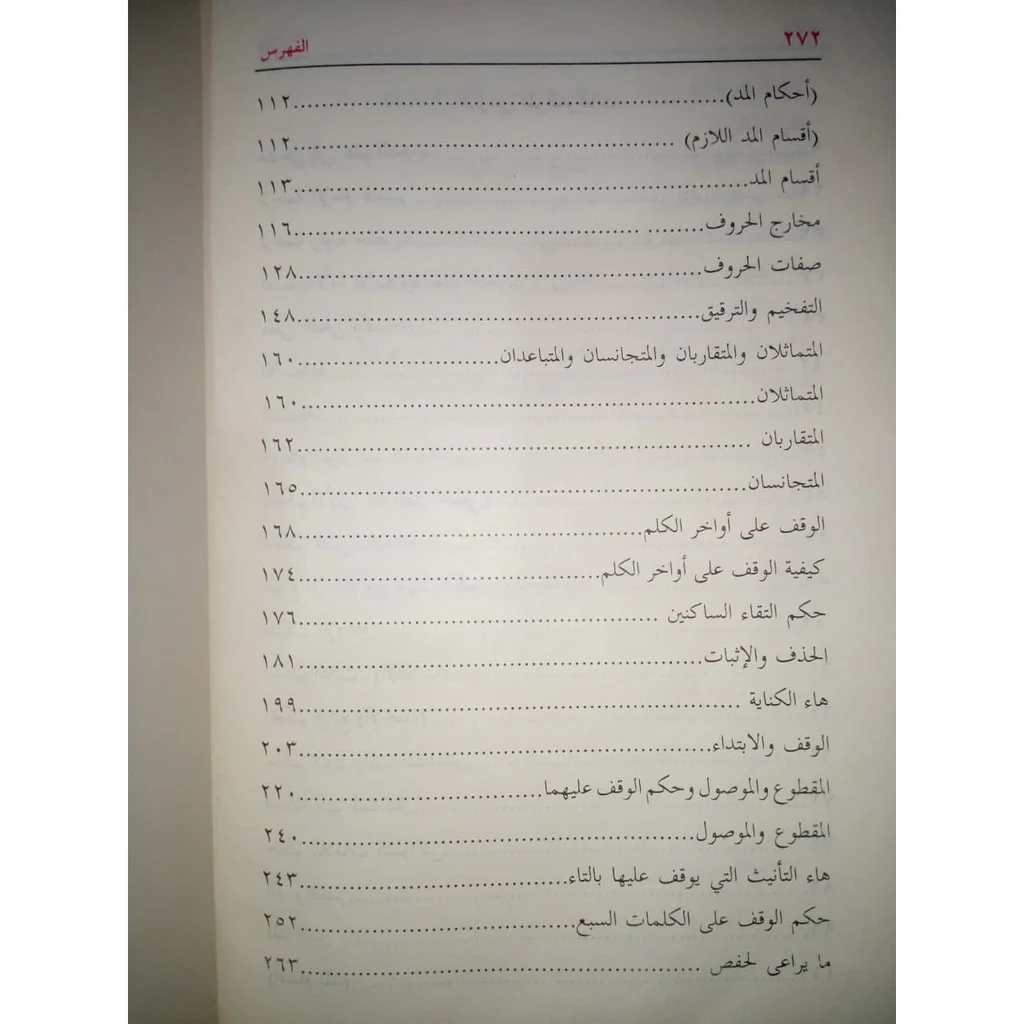 ٢٧٢ الفهرس
(أحكام المد)......................................................١١٢
(أقسام المد اللازم) ................................................١١٢
أقسام المد......................................................١١٣
مخارج الحروف........ ...........................................١١٦
صفات الحروف..................................................١٢٨
التفخيم والترقيق..................................................١٤٨
المتماثلان والمتقاربان والمتجانسان والمتباعدان.............................١٦٠
المتماثلان.......................................................١٦٠
المتقاربان .......................................................١٦٢
المتجانسان......................................................١٦٥
الوقف على أواخر الكلم...........................................١٦٨
كيفية الوقف على أواخر الكلم......................................١٧٤
حكم التقاء الساكنين .............................................١٧٦
الحذف والإثبات..................................................١٨١
هاء الكناية .....................................................١٩٩
الوقف والابتداء..................................................٢٠٣
المقطوع والموصول وحكم الوقف عليهما...............................٢٢٠
المقطوع والموصول................................................٢٤٠
هاء التأنيث التي يوقف عليها بالتاء..................................٢٤٣
حكم الوقف على الكلمات السبع....................................٢٥٢
ما يراعى لحفص .................................................٢٦٣